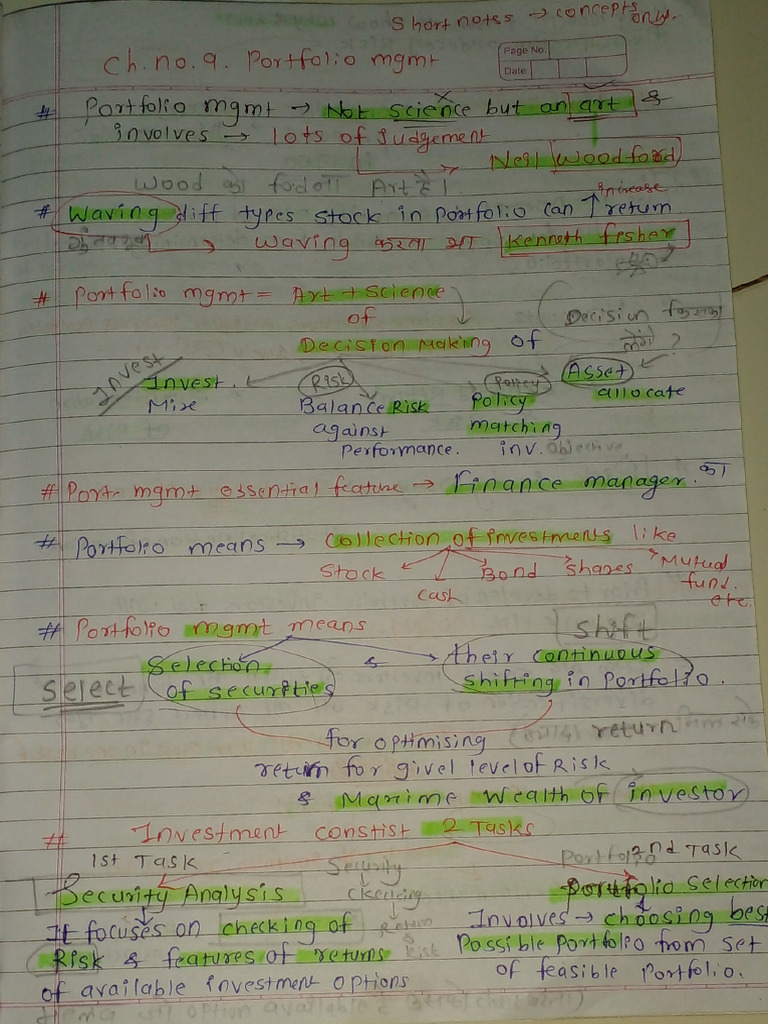 Short notss → concepts only.
Page No.
Date
Ch. no. 9. Portfolio mgmt
# Portfolio mgmt → Not science but an art &
involves → lots of judgement
Neil Woodford
Wood को fodना Art है।
# Waving diff types stock in portfolio can ↑ increase return
→ Waving करता था Kenneth fisher
# Portfolio mgmt = Art + Science
of
Decision Making of
Decision किसका लेंगे ?
Invest
Invest. Mixe
Risk
Balance Risk against Performance.
Policy
Policy matching inv. objective
Asset
allocate
# Port. mgmt essential feature → Finance manager. का
# Portfolio means → Collection of investments like
Stock cash Bond shares Mutual fund. etc.
# Portfolio mgmt means
shift
Select
Selection of securities & their continuous shifting in portfolio.
for optimising
return
return for givel level of Risk
& Maxime Wealth of investor
# Investment constist 2 Tasks
1st Task
Security Analysis
It focuses on checking of
Risk & features of returns
of available investment options
Security
Checking
Return & Risk
Portfolio
2nd Task
Portfolio Selection
Involves → choosing best
Possible portfolio from set
of feasible portfolio.